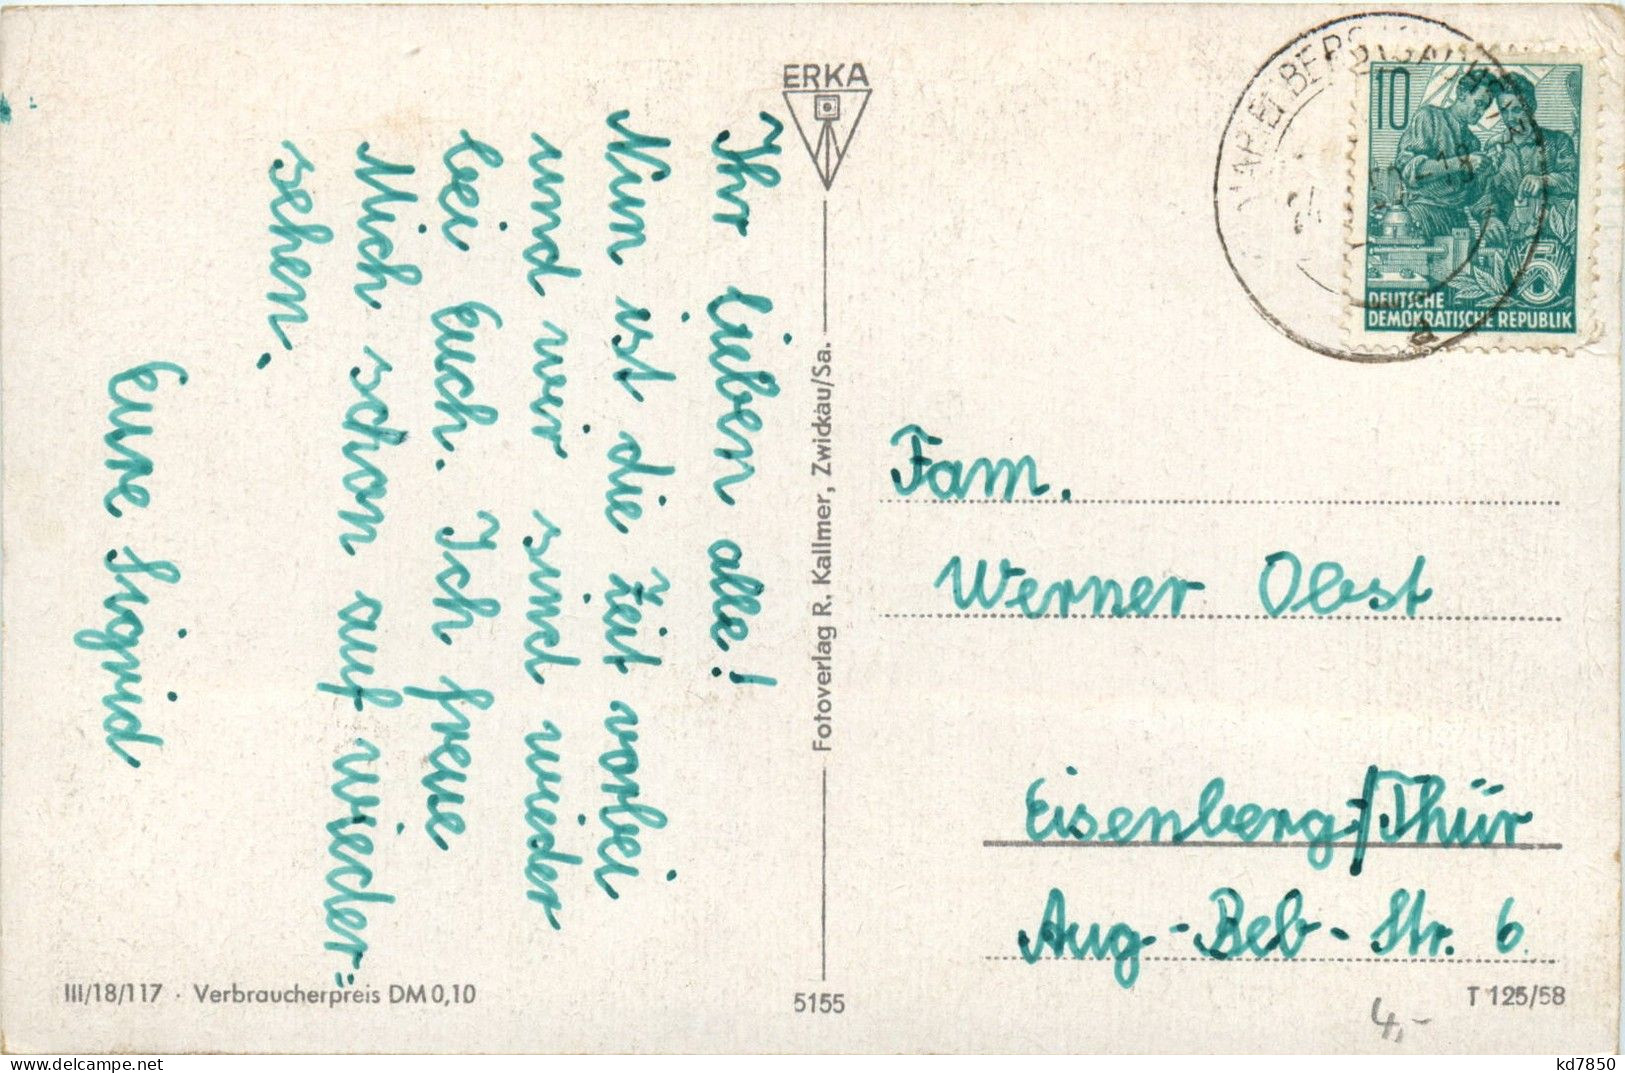 Ihr lieben alle!
Nun ist die Zeit vorbei
und wir sind wieder
bei Euch. Ich freue
Mich schon auf wieder=
sehen.
Eure Sigrid
ERKA
Fotoverlag R. Kallmer, Zwickau/Sa.
10
5
DEUTSCHE
DEMOKRATISCHE REPUBLIK
d
Fam.
Werner Obst
Eisenberg/Thür
Aug-Beb-Str. 6
III/18/117 · Verbraucherpreis DM 0,10
5155
T 125/58
4,-
kd7850